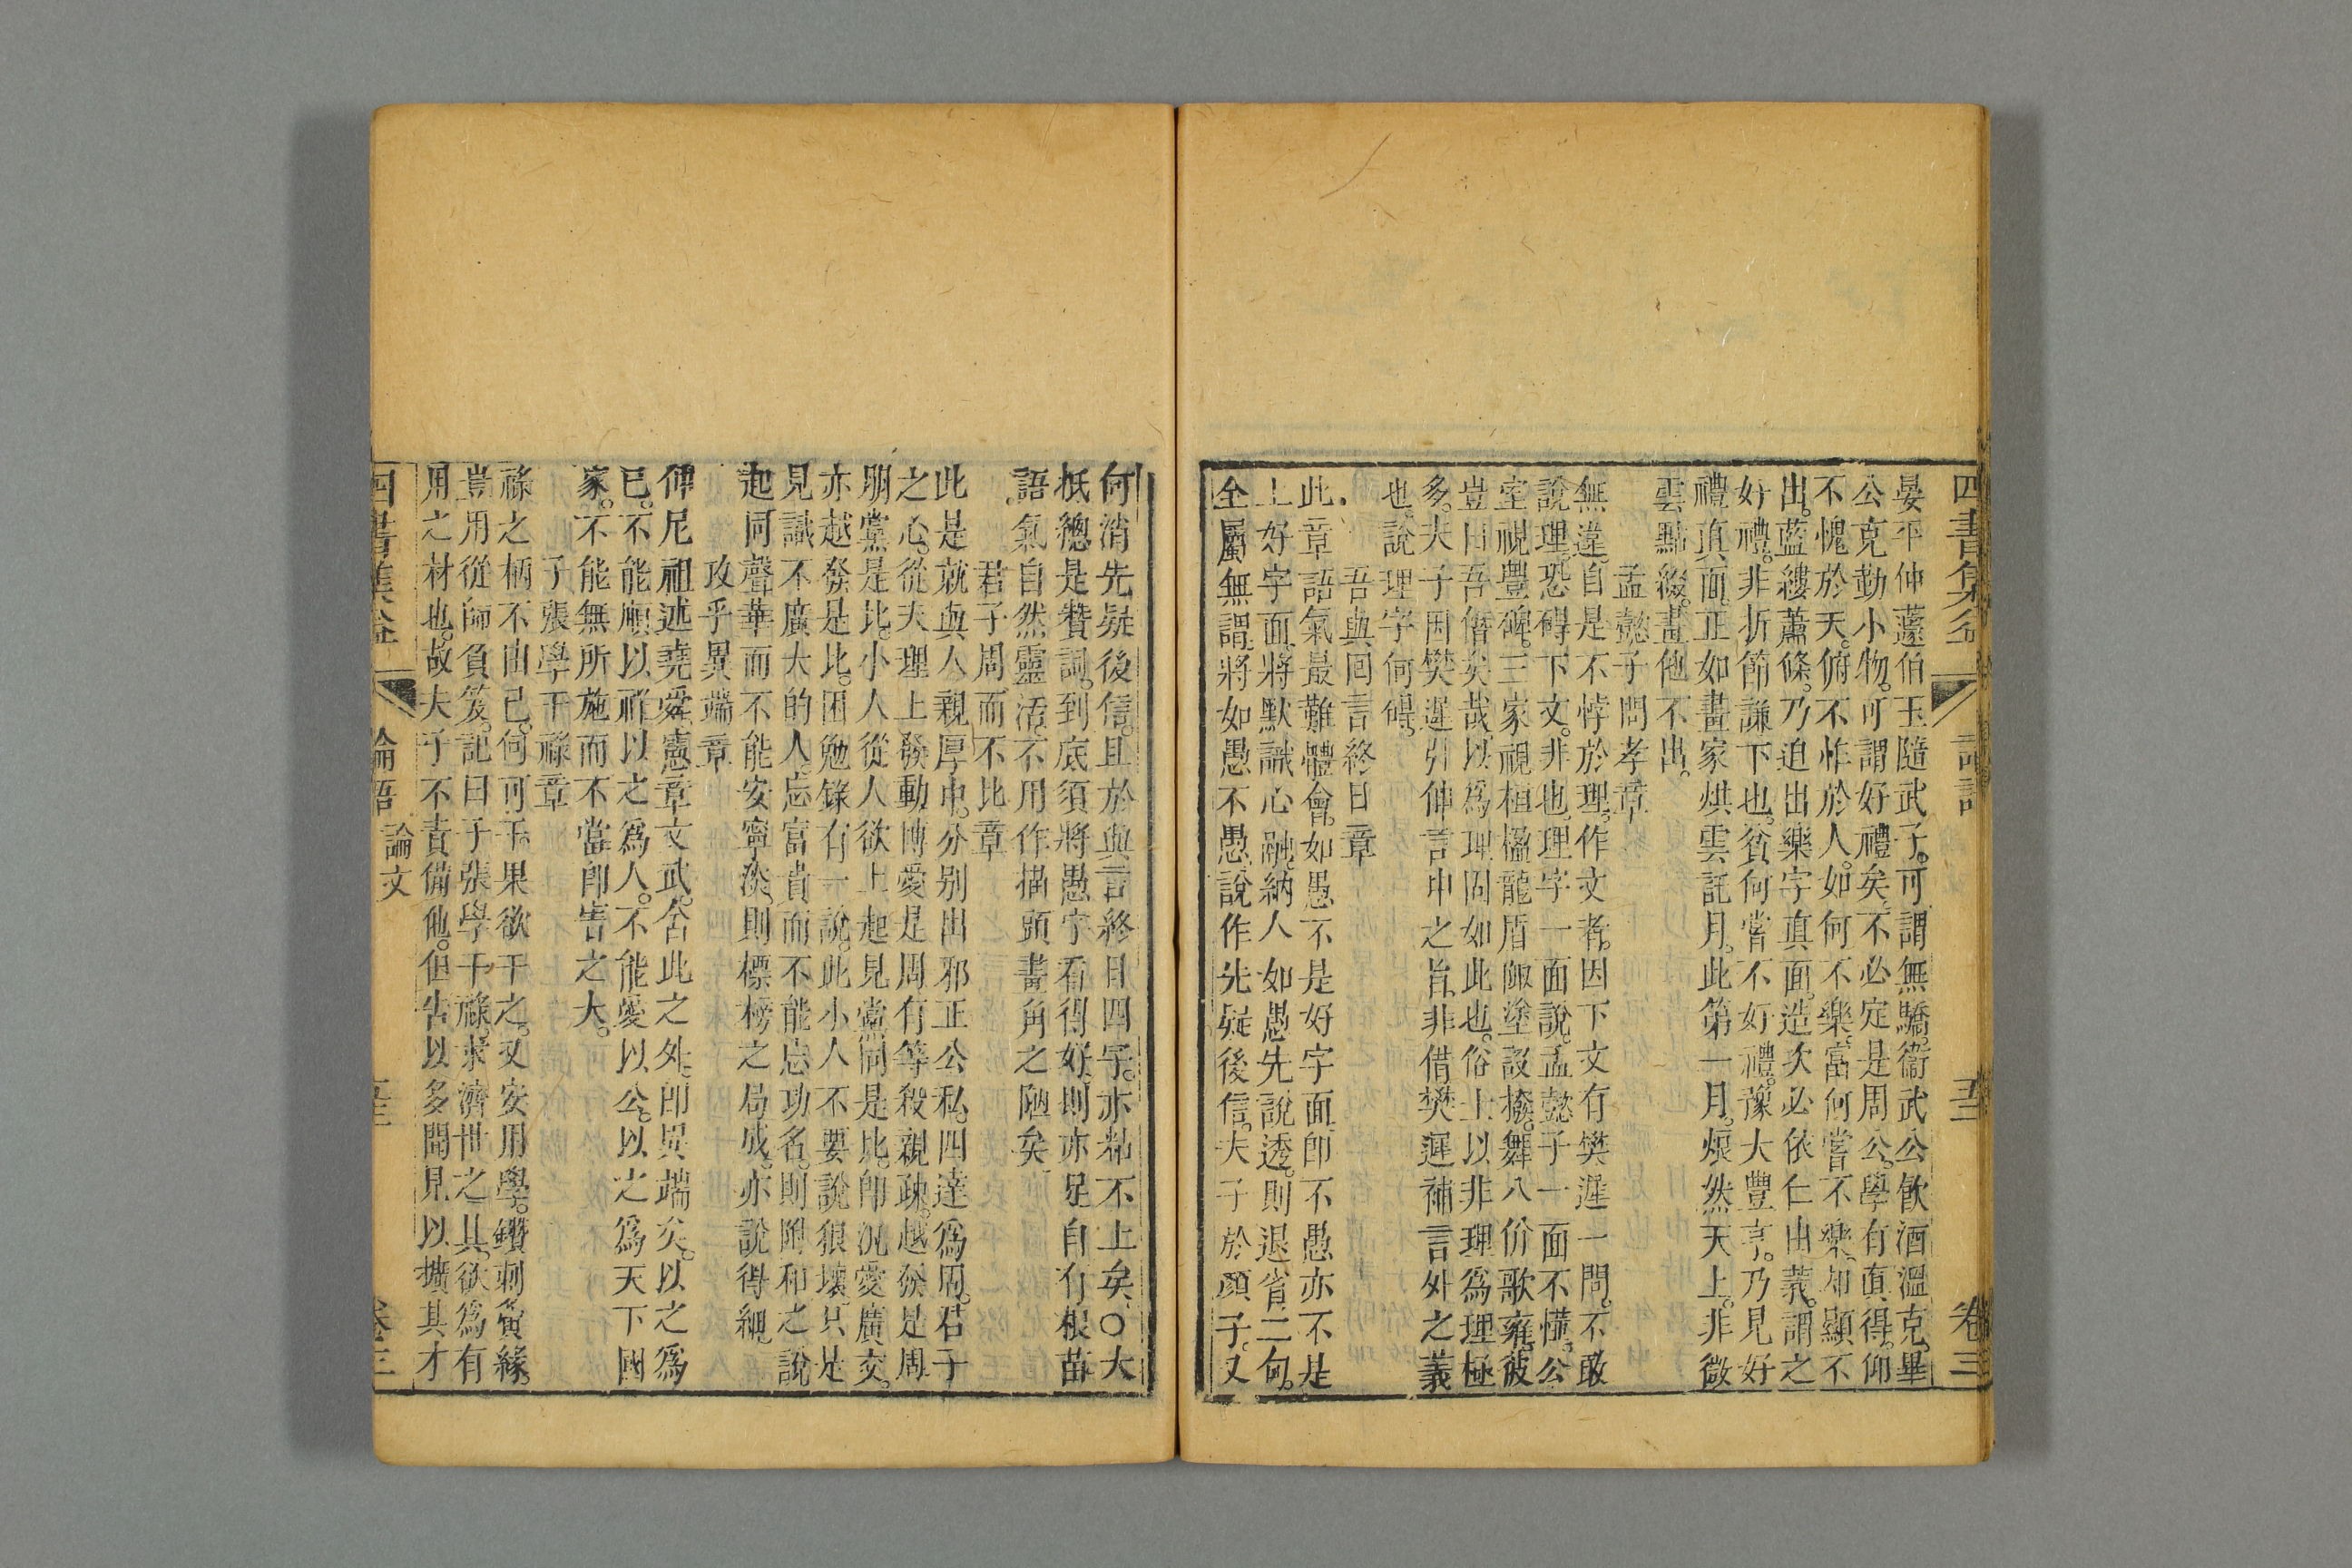 四書集益 論語 五三 卷三
晏平仲蘧伯玉隨武子。可謂無驕。衞武公飮酒溫克。畢
公克勤小物。可謂好禮矣。不必定是周公。學有眞得。仰
不愧於天。俯不怍於人。如何不樂。富何嘗不樂。却顯不
出。藍縷蕭條。乃迫出樂字眞面。造次必依仁由義。謂之
好禮。非折節謙下也。貧何嘗不好禮。豫大豐亨。乃見好
禮眞面。正如畫家烘雲託月。此第一月。烺然天上。非微
雲點綴。畫他不出。
孟懿子問孝章
無違。自是不悖於理。作文者。因下文有樊遲一問。不敢
說理。恐碍下文。非也。理字一面說。孟懿子一面不懂。公
室視豐碑。三家視桓楹。龍盾陬塗設撥。舞八佾歌雍。彼
豈曰吾僭矣哉。以爲理固如此也。俗士以非理爲理極
多。夫子因樊遲引伸言中之旨。非借樊遲補言外之義
也。說理字何碍。
吾與回言終日章
此章語氣最難體會。如愚不是好字面。卽不愚亦不是
上好字面。將默識心融。納入如愚先說透。則退省二句。
全屬無謂。將如愚不愚。說作先疑後信。夫子於顏子。又
何消先疑後信。且於與言終日四字。亦粘不上矣。○大
抵總是贊詞。到底須將愚字看得好。則亦足自有根苗。
語氣自然靈活。不用作描頭畫角之陋矣。
君子周而不比章
此是就與人親厚中。分別出邪正公私。四達爲周。君子
之心。從天理上發動。博愛是周。有等殺親疎。越發是周。
朋黨是比。小人從人欲上起見。黨同是比。卽汎愛廣交。
亦越發是比。困勉錄有一說。此小人不要說狠壞。只是
見識不廣大的人。忘富貴而不能忘功名。則附和之說
起。同聲華而不能安寧淡。則標榜之局成。亦說得細。
攻乎異端章
仲尼祖述堯舜。憲章文武。舍此之外。卽異端矣。以之爲
己。不能順以祥。以之爲人。不能愛以公。以之爲天下國
家。不能無所施而不當。卽害之大。
子張學干祿章
祿之柄不由己。何可干。果欲干之。又安用學。鑽刺夤緣。
豈用從師負笈。記曰子張學干祿。求濟世之具。欲爲有
用之材也。故夫子不責備他。但告以多聞見以擴其才
四書集益 論語 論文 五三 卷三